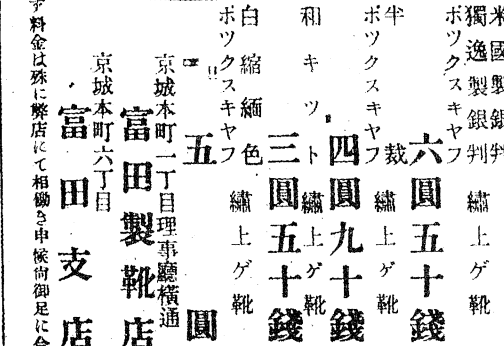 米國製銀判
獨逸製銀判
ボツクスキヤフ
繡上ゲ靴
六圓五十錢
半裁
ボツクスキヤフ
繡上ゲ靴
四圓九十錢
和キツト
繡上ゲ靴
三圓五十錢
白縮緬色
ボツクスキヤフ
繡上ゲ靴
五圓
京城本町一丁目理事廳橫通
富田製靴店
京城本町六丁目
富田支店
料金は殊に弊店にて相働き申候尚御足に